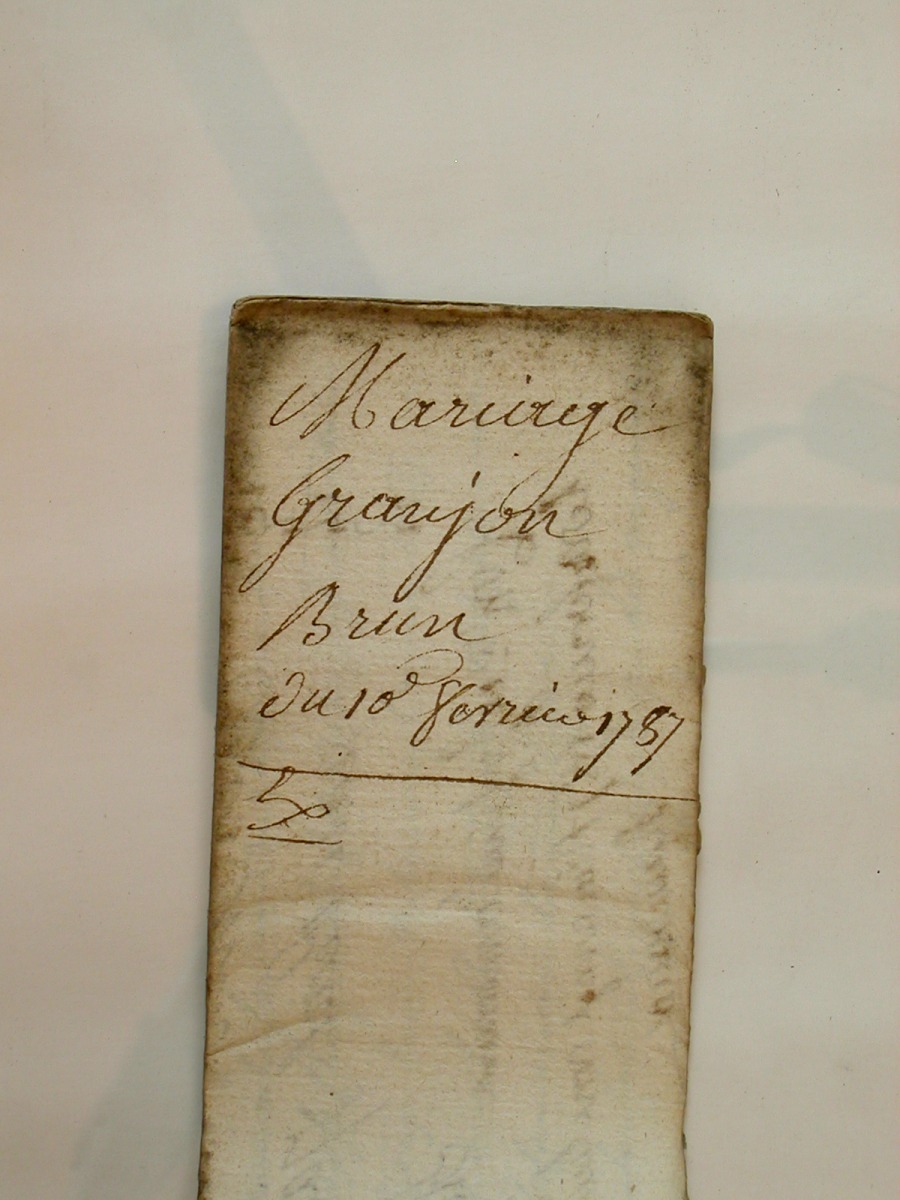 Mariage
Granjon
Brun
du 10e fevrier 1787